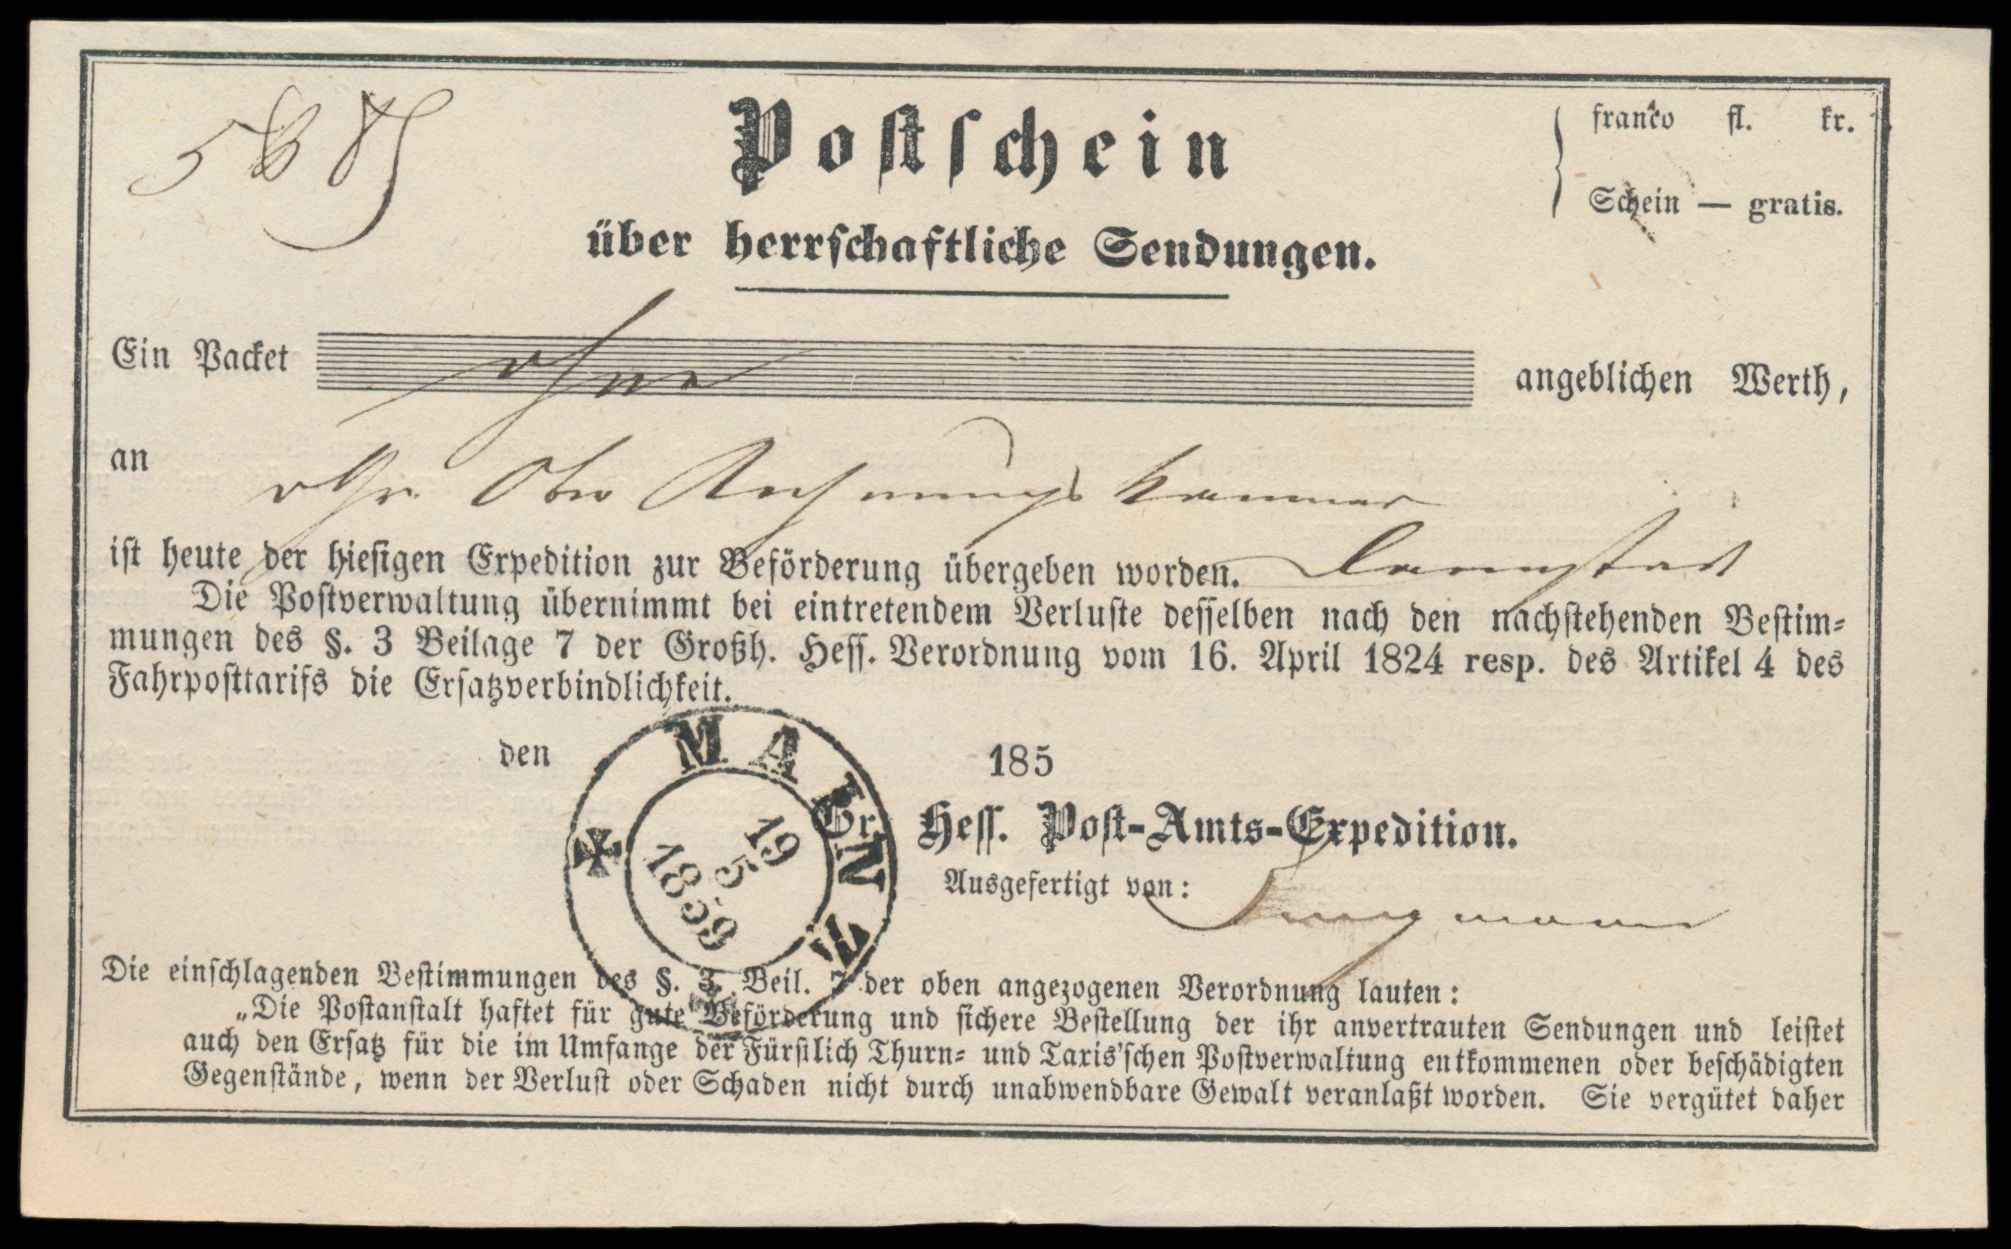 Postschein
franco fl. kr.
über herrschaftliche Sendungen.
Schein — gratis.
Ein Packet ohne angeblichen Werth,
an Ober Rechnungs Kammer
ist heute der hiesigen Expedition zur Beförderung übergeben worden. Darmstadt
Die Postverwaltung übernimmt bei eintretendem Verluste desselben nach den nachstehenden Bestim-
mungen des §. 3 Beilage 7 der Großh. Hess. Verordnung vom 16. April 1824 resp. des Artikel 4 des
Fahrposttarifs die Ersatzverbindlichkeit.
den 185
MAINZ
19
5
1859
Gr. Hess. Post-Amts-Expedition.
Ausgefertigt von:
Die einschlagenden Bestimmungen des §. 3. Beil. 7 der oben angezogenen Verordnung lauten:
„Die Postanstalt haftet für gute Beförderung und sichere Bestellung der ihr anvertrauten Sendungen und leistet
auch den Ersatz für die im Umfange der Fürstlich Thurn- und Taxis'schen Postverwaltung entkommenen oder beschädigten
Gegenstände, wenn der Verlust oder Schaden nicht durch unabwendbare Gewalt veranlaßt worden. Sie vergütet daher